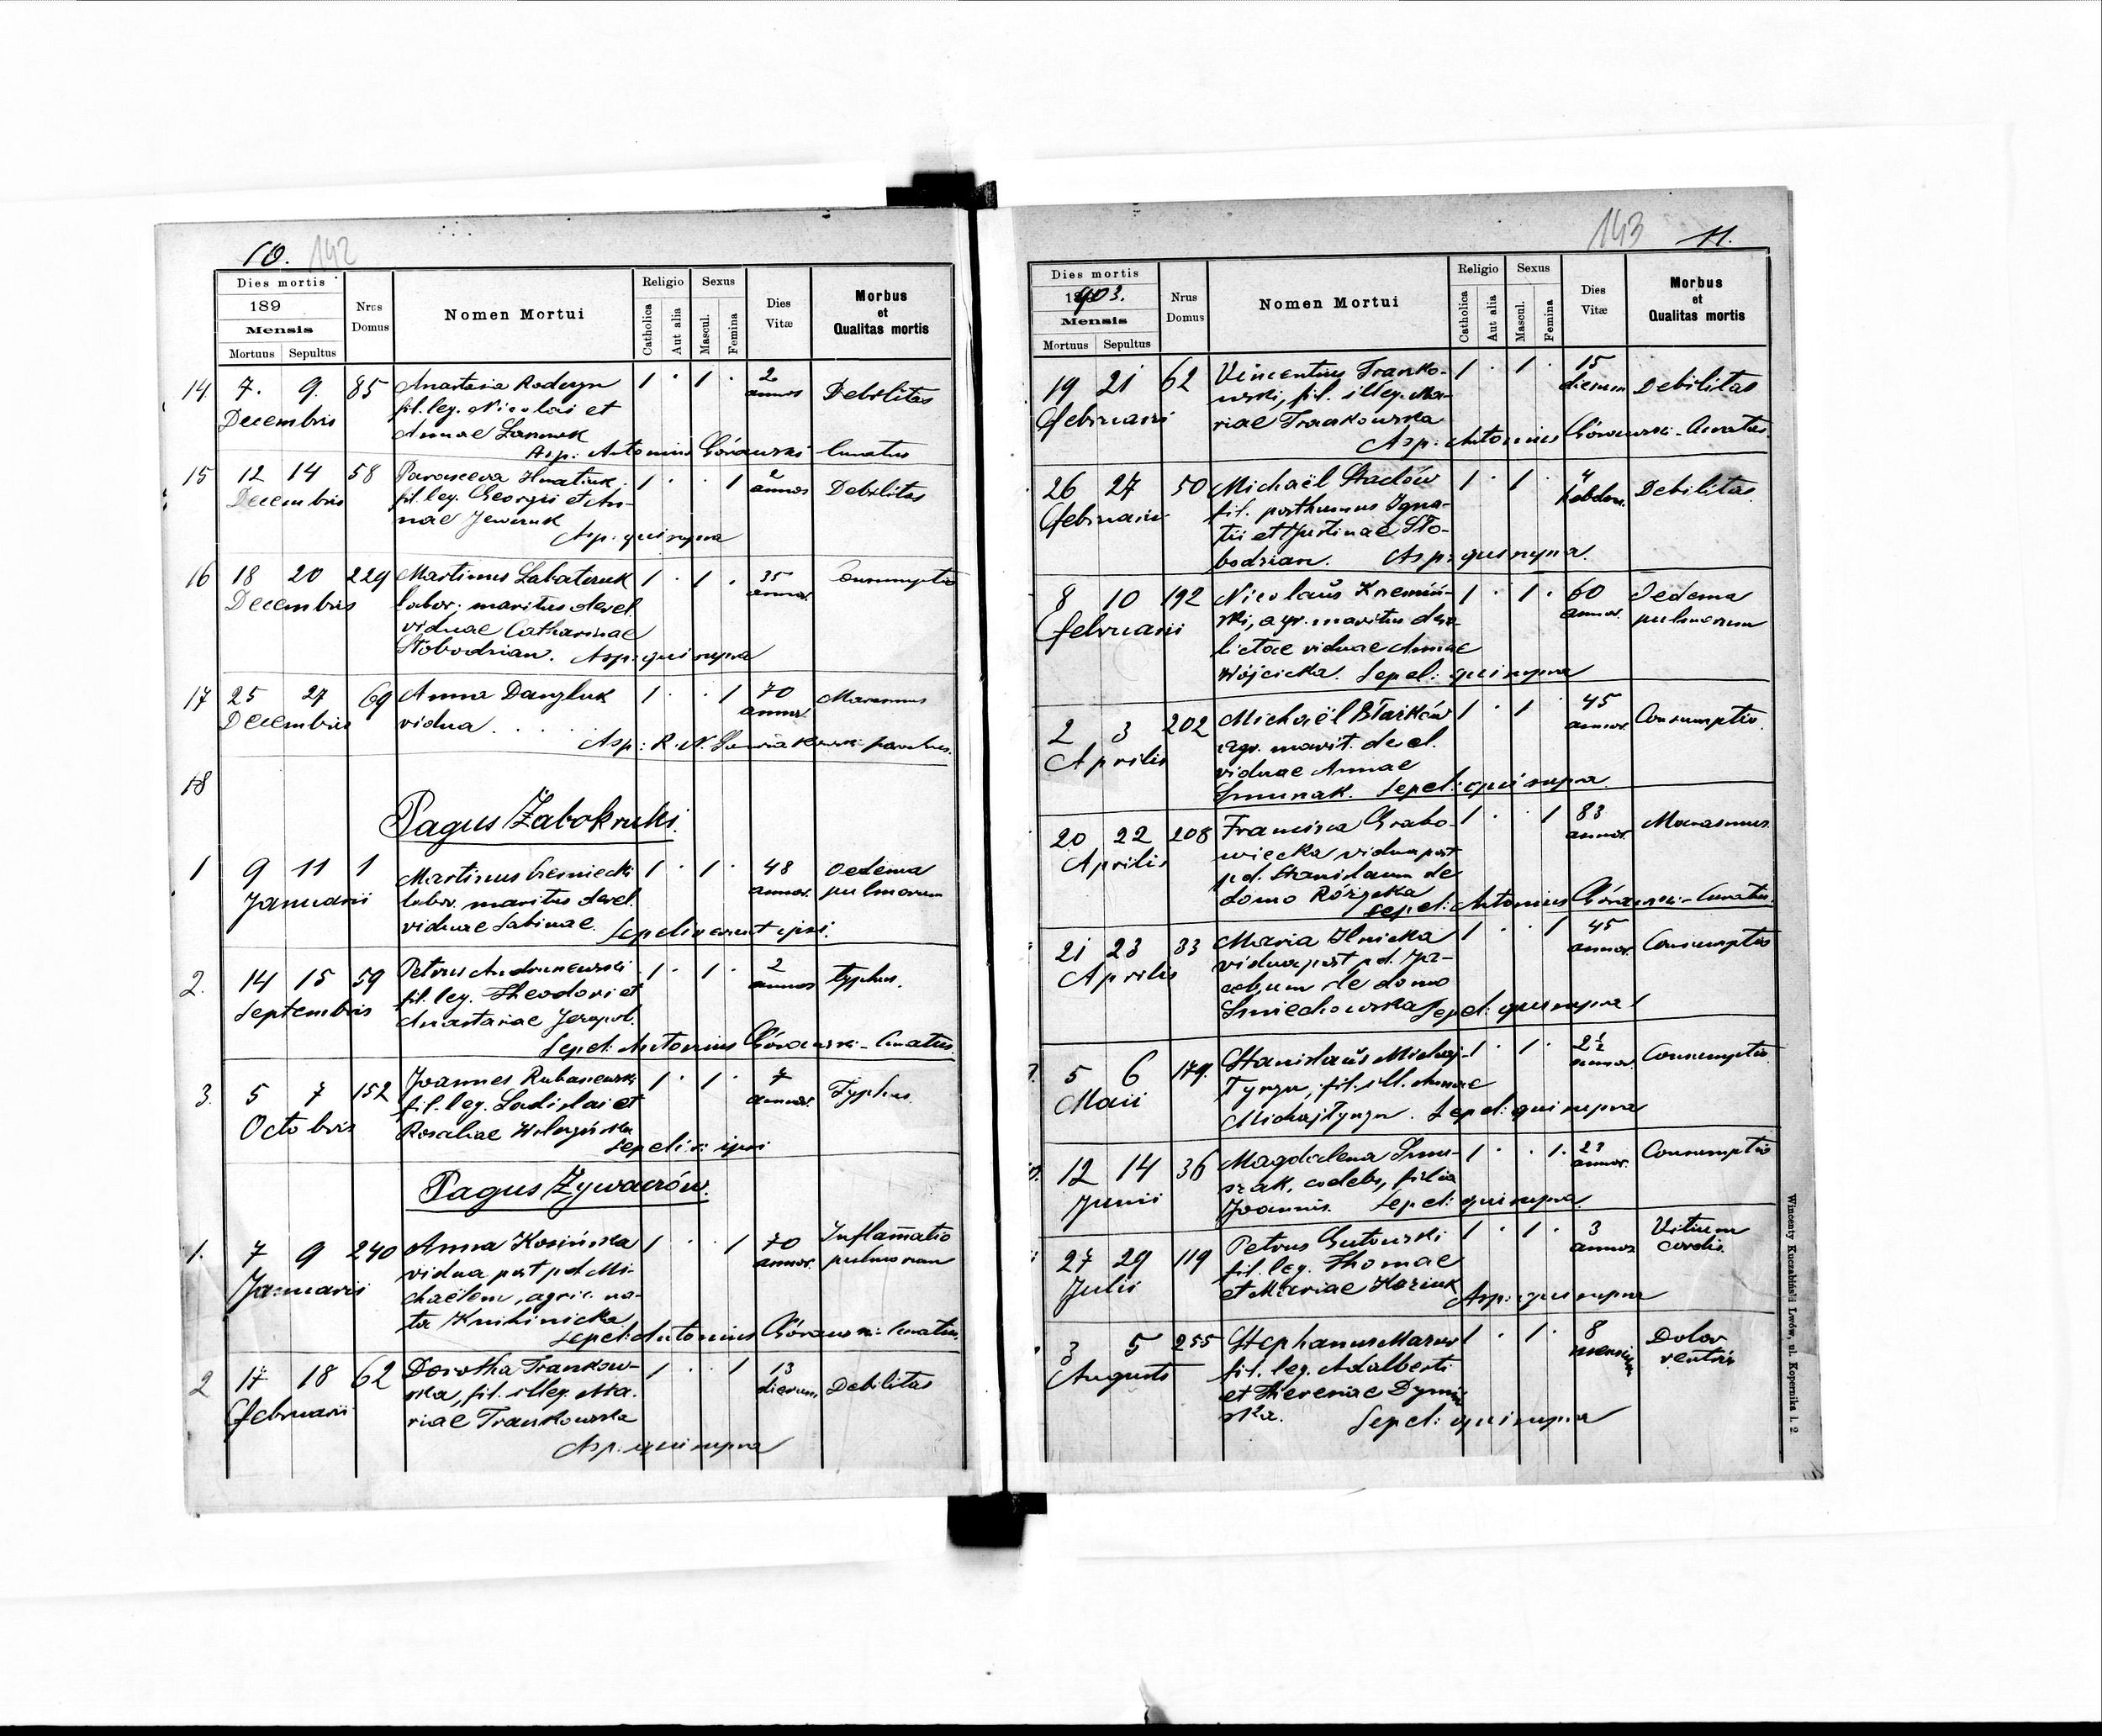 10. 142
Dies mortis
189
Mensis
Mortuus Sepultus
Nrus Domus
Nomen Mortui
Religio
Catholica Aut alia
Sexus
Mascul. Femina
Dies Vitæ
Morbus et Qualitas mortis
14. 7. 9. 85 Anastasia 1 · 1 · 2 annos Debilitas
Decembris fil. leg. Nicolai et
Annae
Asp: Antonius Górawski Curatus
15 12 14 58 Parasceva Hnatiuk 1 · · 1 2 annos Debilitas
Decembris fil. leg. Georgii et An-
nae
Asp: qui supra
16 18 20 229 Martinus 1 · 1 · 35 annor. Consumptio
Decembris labor. maritus derel.
viduae Catharinae
Słobodzian. Asp: qui supra
17 25 27 69 Anna Danyluk 1 · · 1 70 annor. Marasmus
Decembris vidua
Asp: R. N. parochus.
18
Pagus Żabokruki.
1 9 11 1 Martinus 1 · 1 · 48 annor. Oedema
Januarii labor. maritus derel. pulmorum
viduae Sabinae. Sepeliverunt ipsi.
2. 14 15 59 Petrus 1 · 1 · 2 annos typhus.
Septembris fil. leg. Theodori et
Anastasiae
Sepel: Antonius Górawski - Curatus.
3. 5 7 152 Joannes 1 · 1 · 7 annor. Typhus.
Octobris fil. leg. Ladislai et
Rosaliae
ipsi
Pagus Żywaczów.
1. 7 9 240 Anna Kosińska 1 · · 1 70 annor. Inflam̄atio
Januarii vidua post pd. Mi- pulmonum
chaëlem, agric. na-
ta Knihinicka
Sepel: Antonius Górawski Curatus.
2 17 18 62 Dorotha Trankow- 1 · · 1 13 dierum Debilitas
Februarii ska, fil. illeg. Ma-
riae Trankowska
Asp: qui supra
143 11.
Dies mortis
1903.
Mensis
Mortuus Sepultus
Nrus Domus
Nomen Mortui
Religio
Catholica Aut alia
Sexus
Mascul. Femina
Dies Vitæ
Morbus et Qualitas mortis
19 21 62 Vincentius Tranko- 1 · 1 · 15 dierum Debilitas
Februarii wski, fil. illeg. Ma-
riae Trankowska
Asp: Antonius Górawski - Curatus.
26 27 50 Michaël 1 · 1 · 4 hebdom. Debilitas
Februarii fil. posthumus Igna-
tii et Justinae Sło-
bodzian. Asp: qui supra.
8 10 192 Nicolaŭs Kremiń- 1 · 1 · 60 annor. Oedema
Februarii ski, agr. maritus dere- pulmorum
lictae viduae Annae
Wójcicka. Sepel: qui supra
2 3 202 Michaël 1 · 1 · 45 annor. Consumptio
Aprilis agr. marit. derel.
viduae Annae
Sepel: qui supra
20 22 208 Francisca Grabo- 1 · · 1 83 annor. Marasmus
Aprilis wiecka vidua post
pd. Stanislaum de
domo Różycka
Sepel: Antonius Górawski - Curatus.
21 23 33 Maria Ilnicka 1 · · 1 45 annor. Consumptio
Aprilis vidua post pd. Ja-
cobum de domo
Śmiechowska Sepel: qui supra
5 6 179. Stanislaŭs Michaj- 1 · 1 · 2½ annor. Consumptio
Maii fil. ill. Annae
Sepel: qui supra
12 14 36 Magdalena 1 · · 1 · 23 annor. Consumptio
Junii filia
Joannis. Sepel: qui supra
27 29 119 Petrus Gutowski 1 · 1 · 3 annos Vitium
Julii fil. leg. Thomae cordis
et Mariae Koziuk
Asp: qui supra
3 5 255 Stephanus Mazur 1 · 1 · 8 mensium Dolor
Augusti fil. leg. Adalberti ventris
et Theresiae
ska. Sepel: qui supra
Wincenty Kuczabiński Lwów, ul. Kopernika l. 2